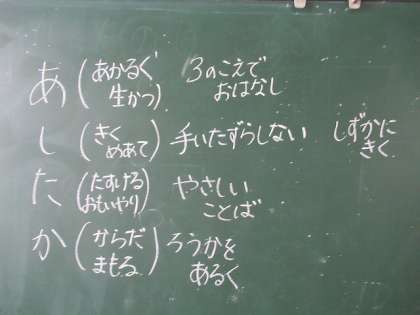 あ(あかるく 3のこえで
生かつ) おはなし
し(きく 手いたずらしない しずかに
めあて) きく
た(たすける やさしい
おもいやり) ことば
か(からだ ろうかを
まもる) あるく